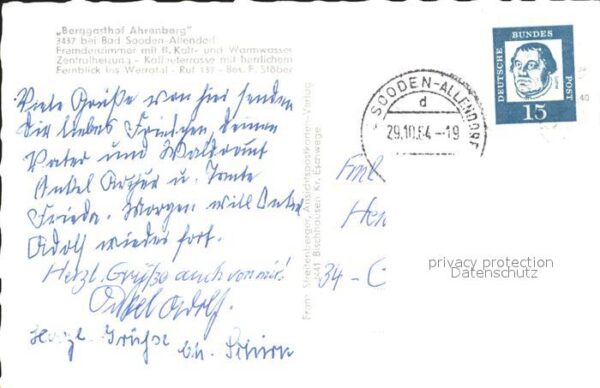 „Berggasthof Ahrenberg"
3437 bei Bad Sooden-Allendorf
Fremdenzimmer mit fl. Kalt- und Warmwasser
Zentralheizung - Kaffeeterrasse mit herrlichem
Fernblick ins Werratal - Ruf 137 - Bes. F. Stöber
Viele Grüße von hier senden
Dir liebes Friedchen, deinen
Vater und Waltraut
Onkel Arthur u. Tante
Frieda. Morgen will Onkel
Adolf wieder fort.
Herzl. Grüße auch von mir!
Onkel Adolf.
Herzl. Grüße
Franz Streitenberger, Ansichtspostkarten-Verlag
3441 Bischhausen Kr. Eschwege
SOODEN-ALLENDORF
d
29.10.64-19
DEUTSCHE BUNDES POST
15
Fml
Hen
34-
privacy protection
Datenschutz